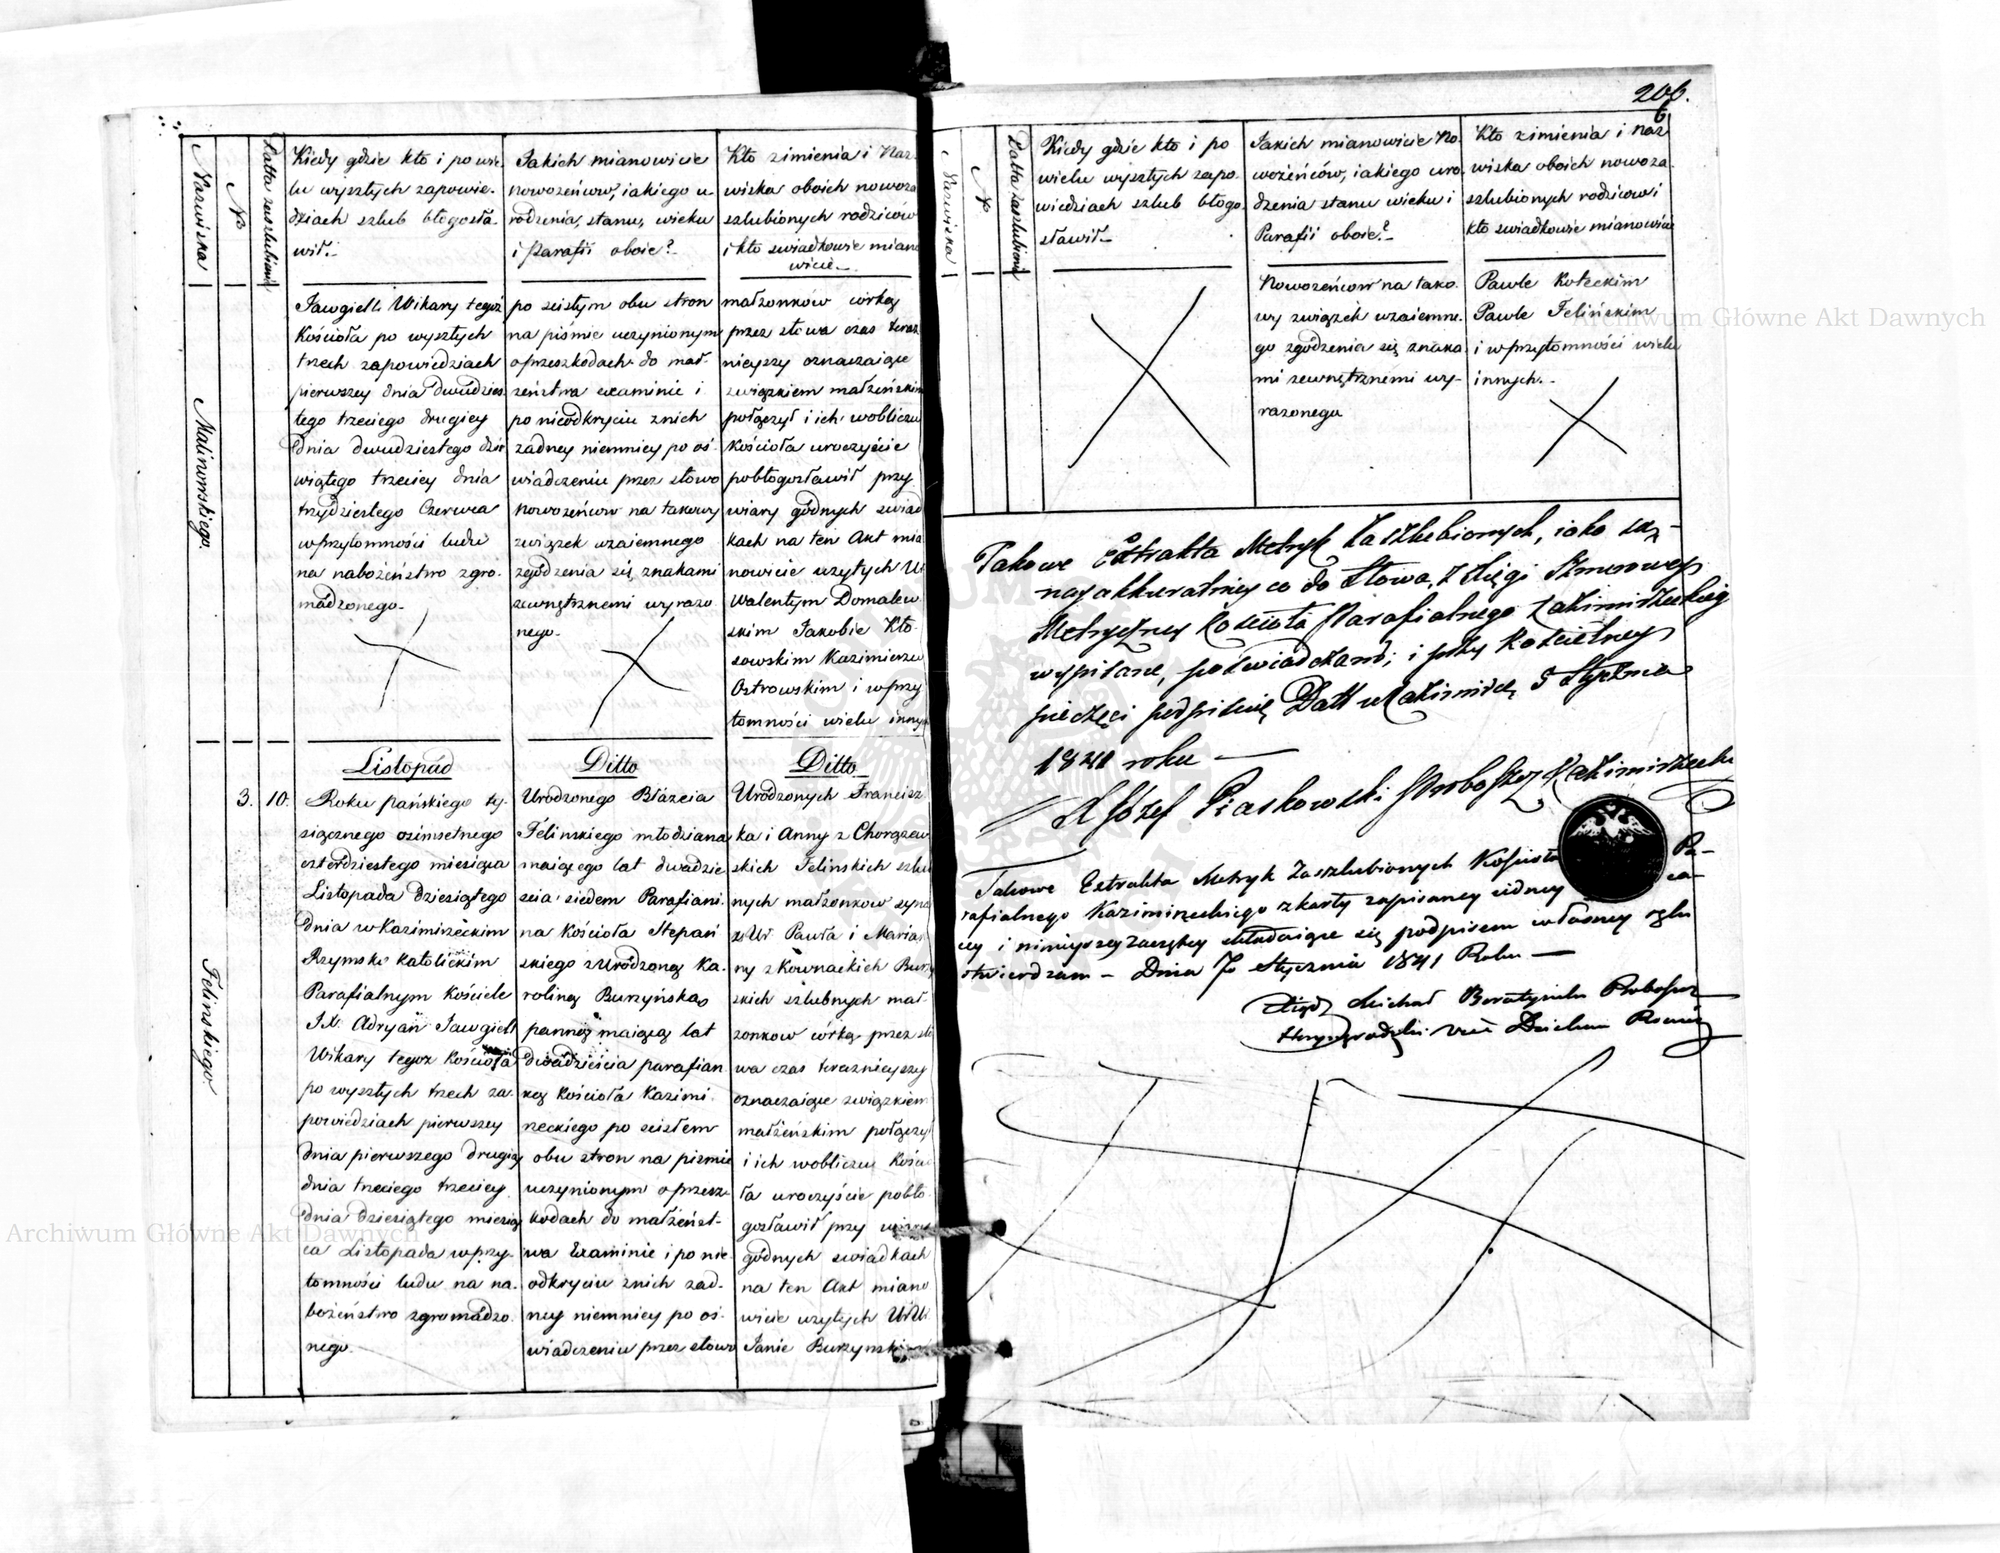 Nazwiska
№
Datta zaszlubień
Kiedy gdzie kto i po wie-
lu wyszłych zapowie-
dziach szlub błogosła-
wił.-
Jakich mianowicie
nowożeńcow, iakiego u-
rodzenia, stanu, wieku
i Parafii oboie?-
Kto z imienia i Naz-
wiska oboich nowoza
szlubionych rodziców
i kto swiadkowie miano
wicie.-
Malinowskiego.
Jawgiełł Wikary tegoż
Kościoła po wyszłych
trzech zapowiedziach
pierwszey dnia dwudzies
tego trzeciego drugiey
dnia dwudziestego dzie
wiątego trzeciey dnia
trzydziestego Czerwca
w przytomności ludu
na nabożeństwo zgro-
madzonego.-
po scisłym obu stron
na piśmie uczynionym
o przeszkodach do mał-
żeństwa examinie i
po nieodkryciu z nich
żadney niemniey po oś-
wiadczeniu przez słowo
Nowożeńcow na takowy
związek wzaiemnego
zgodzenia się znakami
zewnętrznemi wyrażo
nego.-
małżonków córką
przez słowa czas teraz
nieyszy oznaczaiące
związkiem małżeńskim
połączył i ich w obliczu
Kościoła uroczyście
pobłogosławił przy
wiary godnych swiad
kach na ten Akt mia
nowicie użytych
Walentym Domalew
skim Jakobie Kło-
sowskim Kazimierzu
Ostrowskim i w przy
tomności wielu innych
3.
10.
Felinskiego
Listopad
Roku pańskiego ty-
siącznego ośmsetnego
czterdziestego miesiąca
Listopada dziesiątego
dnia w Kazimirzeckim
Rzymsko katolickim
Parafialnym Kościele
J.X. Adryan Jawgiełł
Wikary tegoż Kościoła
po wyszłych trzech za-
powiedziach pierwszey
dnia pierwszego drugiey
dnia trzeciego trzeciey
dnia dziesiątego miesią
ca Listopada w przy-
tomności ludu na na-
bożeństwo zgromadzo-
nego.
Ditto
Urodzonego Błażeia
Felinskiego młodziana
maiącego lat dwadzie
scia siedem Parafiani-
na Kościoła Stepań
skiego z Urodzoną Ka-
roliną Burzyńską
panną maiącą lat
dwadzieścia parafian
ką Kościoła Kazimi-
rzeckiego po scisłem
obu stron na pismie
uczynionym o przesz-
kodach do małżeńst-
wa Examinie i po nie-
odkryciu z nich żad-
ney niemniey po oś-
wiadczeniu przez słowo
Ditto
Urodzonych Francisz
ka i Anny z Chorązew
skich Felinskich szlub
nych małżonkow syna
z Ur Pawła i Marian
ny z Kownackich Burzy
skich szlubnych mał-
żonkow córką przez sło
wa czas terazniejszy
oznaczaiące związkiem
małżeńskim połączył
i ich w obliczu Kościo
ła uroczyście pobło-
gosławił przy wiary
godnych swiadkach
na ten Akt miano
wicie użytych Ur Ur
Janie Burzynskim
206.
6
Nazwiska
№
Datta zaszlubień
Kiedy gdzie kto i po
wielu wyszłych zapo-
wiedziach szlub błogo-
sławił.-
Jakich mianowicie No-
wożeńców, iakiego uro-
dzenia stanu wieku i
Parafii oboie?-
Kto z imienia i naz
wiska oboich nowoza-
szlubionych rodzicow i
kto swiadkowie mianowicie
Nowożeńcow na tako-
wy związek wzaiemne-
go zgodzenia się znaka
mi zewnętrznemi wy-
rażonego
Pawle Kołeckim
Pawle Felińskim
i w przytomności wielu
innych.-
Takowe Extrakta Metryk Zaszlubionych, iako są
nayakkuratniey co do słowa, z Xięgi Sznurowey
Metryczney Kościoła Parafialnego Kazimirzeckiego
wypisane, poświadczam; i przy Kościelney
pieczęci podpisuię Datt w Kazimirzu 5 Stycznia
1841 roku —
X Józef Piaskowski Proboszcz Kazimirzecki
Takowe Extrakta Metryk Zaszlubionych Kościoła Pa-
rafialnego Kazimirzeckiego z karty zapisaney iedney ca-
ley i ninieyszey zaczętey składaiące się podpisem własney ręki
stwierdzam - Dnia 7 Stycznia 1841 Roku —
Xiądz Michał Proboszcz
Vice Dziekan
Archiwum Główne Akt Dawnych
Archiwum Główne Akt Dawnych